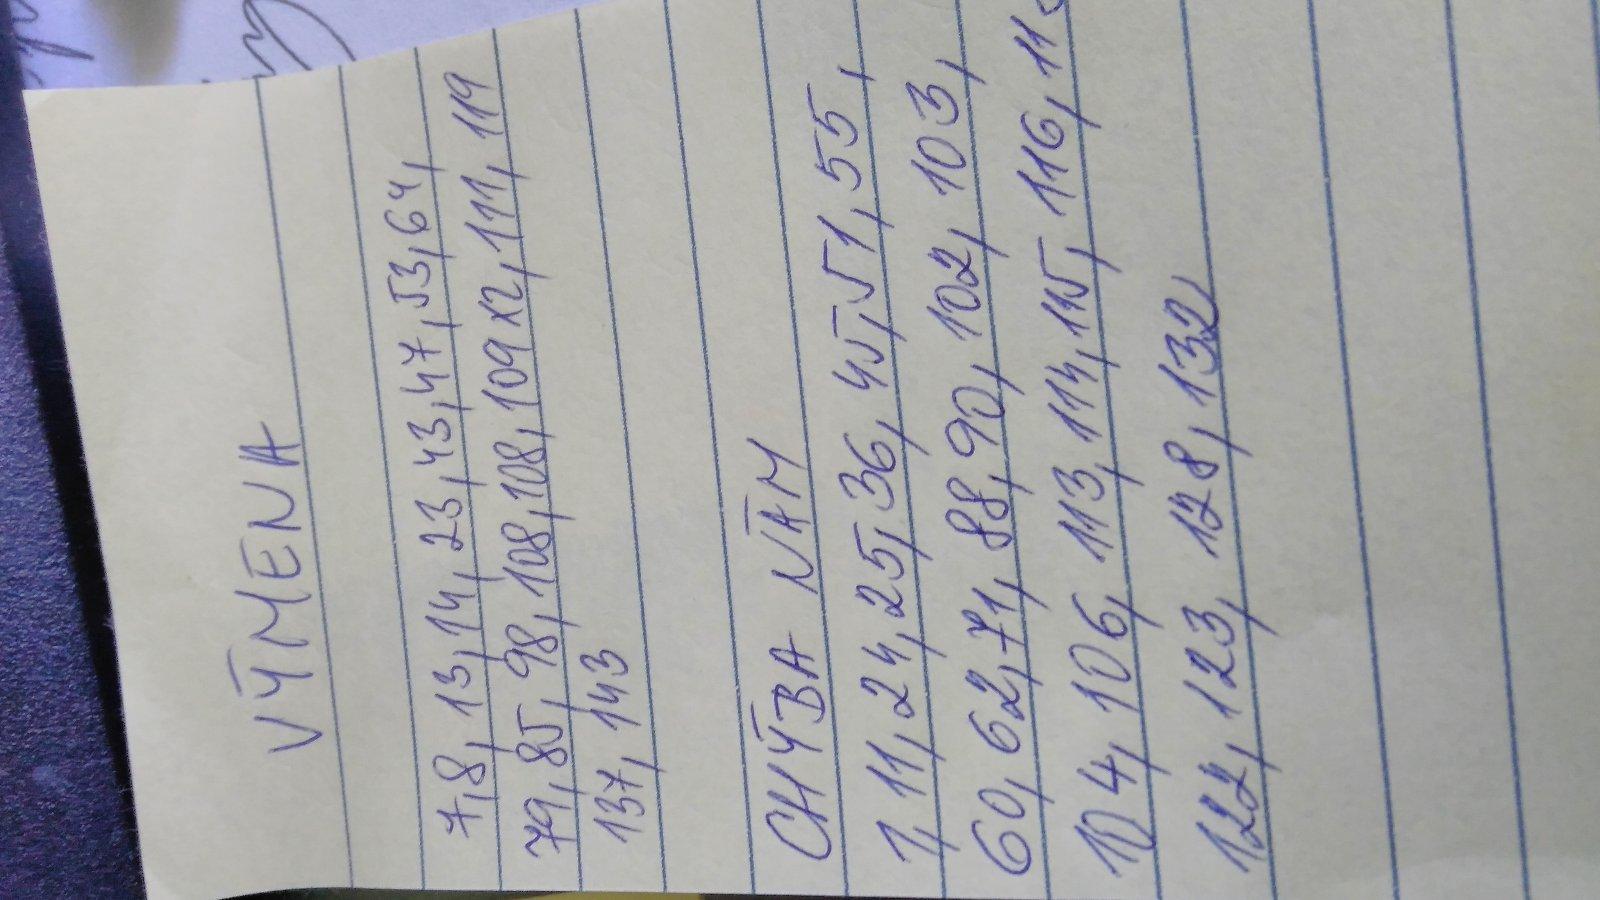 VÝMENA
7,8,13,14,23,43,47,53,64,
79,85,98,108,108,108,109x2,111,119
137,143
CHÝBA NÁM
1,11,24,25,36,45,51,55,
60,62,71,88,90,102,103,
104,106,113,114,115,116,
122,123,128,132,